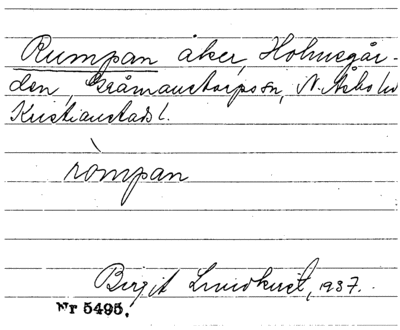 Rumpan åker, Holmsgår-
den, Gråmanstorps sn, N. Åsbo hd
Kristianstads l.
ròmpan
Birgit Lundkvist, 1937.
Nr 5495.